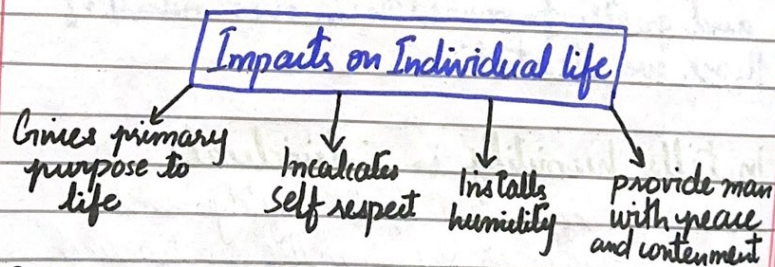 Impacts on Individual life
Gives primary
purpose to
life
Incalcates
self respect
Installs
humidity
provide man
with peace
and contenment